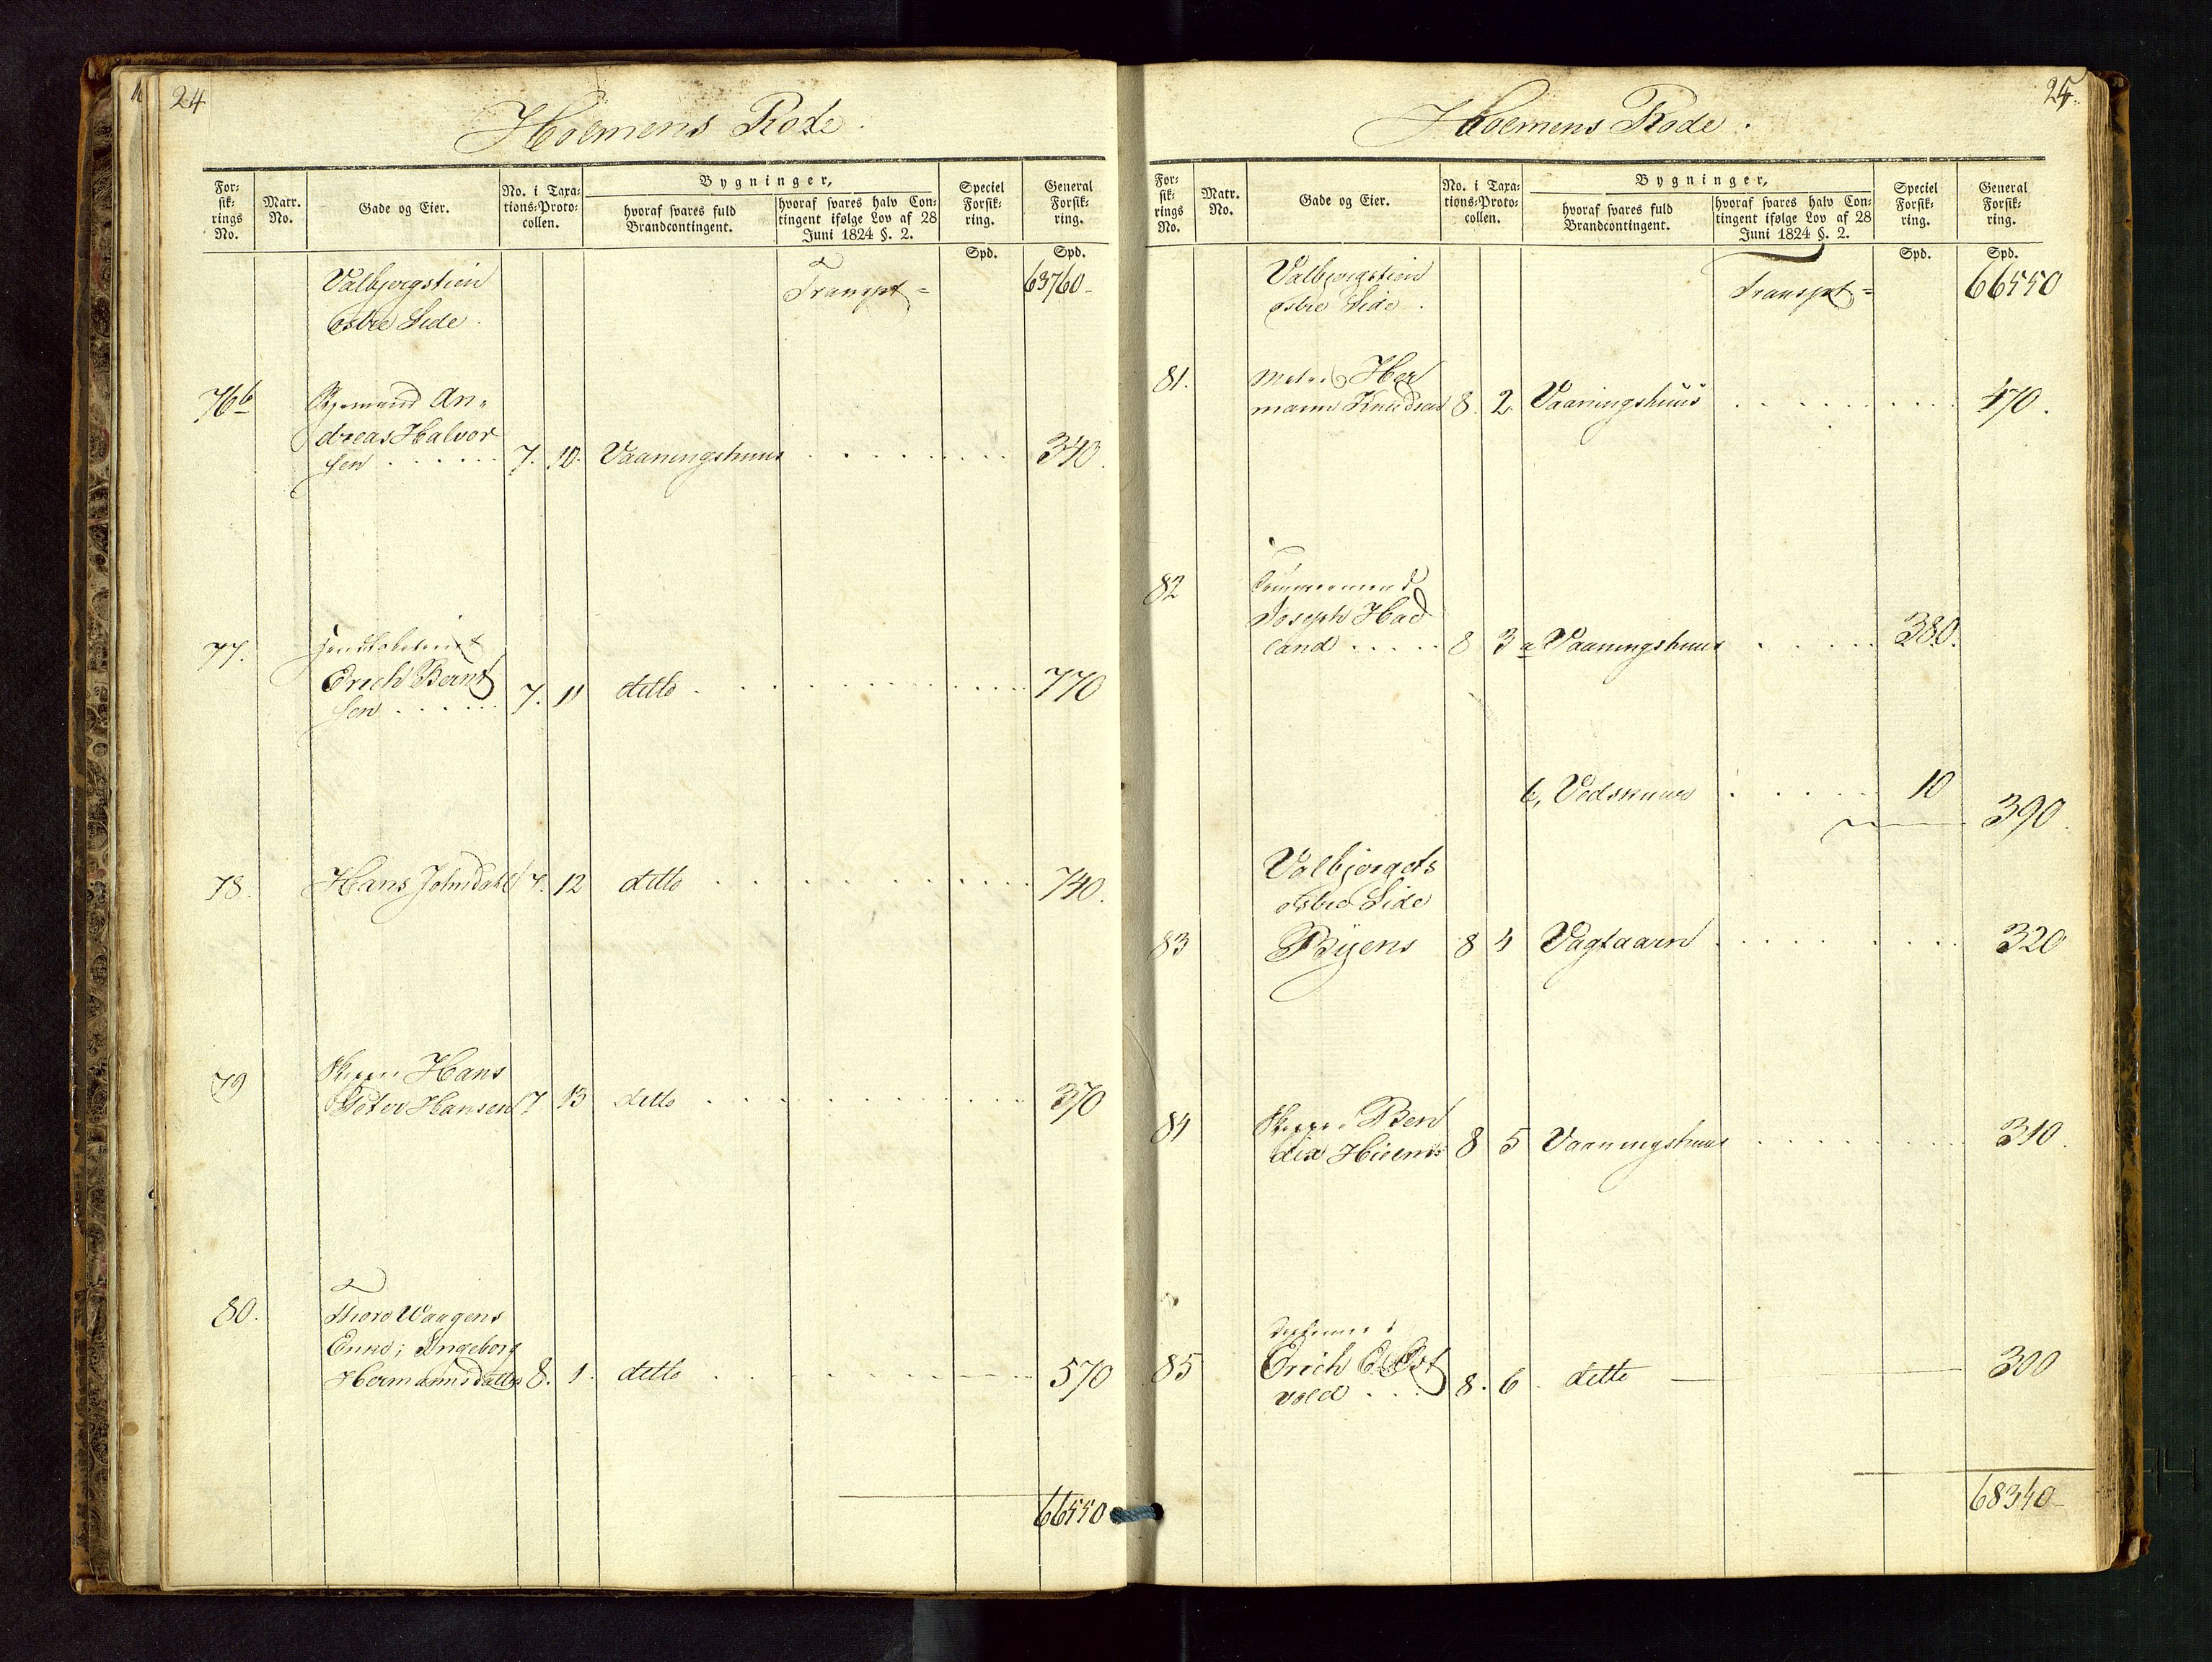 24
Holmens Rode.
For-
sik-
rings
No.
Matr.
No.
Gade og Eier.
No. i Taxa-
tions-Proto-
collen.
Bygninger,
hvoraf svares fuld
Brandcontingent.
hvoraf svares halv Con-
tingent ifølge Lov af 28
Juni 1824 §. 2.
Speciel
Forsik-
ring.
General
Forsik-
ring.
Spd.
Spd.
Valbjergstien
østre Side.
Transpt =
63760-
76b
An-
dreas Halvor
sen . . . . . 7. 10. Vaaningshuus . . . . . . . 340.
77.
Erich Bernt
sen . . . . . 7. 11 ditto . . . . . . . . . 770
78. Hans Johndahl 7. 12 ditto . . . . . . . . . 740.
79 Skipper Hans
Peter Hansen 7 13 ditto . . . . . . . . . 370
80. Thore Waagens
Enke; Ingeborg
Hermannsdatter 8. 1. ditto . . . . . . . . . 570
66550
25.
Holmens Rode.
For-
sik-
rings
No.
Matr.
No.
Gade og Eier.
No. i Taxa-
tions-Proto-
collen.
Bygninger,
hvoraf svares fuld
Brandcontingent.
hvoraf svares halv Con-
tingent ifølge Lov af 28
Juni 1824 §. 2.
Speciel
Forsik-
ring.
General
Forsik-
ring.
Spd.
Spd.
Valbjergstien
østre Side.
Transpt =
66550
81. Her
mann Knudsen 8. 2. Vaaningshuus . . . . . . . 470.
82 Tømmermand
Joseph Had
land . . . . . 8 3 a Vaaningshuus . . . . . 380.
b, Vedskuur . . . . . 10
390.
Valbjergets
østre Side
83 Byens 8 4 Vagtaarn . . . . . . . 320
84 Skipper Ben
dix Hielm 8 5 Vaaningshuus . . . . . . . 310.
85 Erich Øst
vold . . . 8. 6 ditto 300
68340-